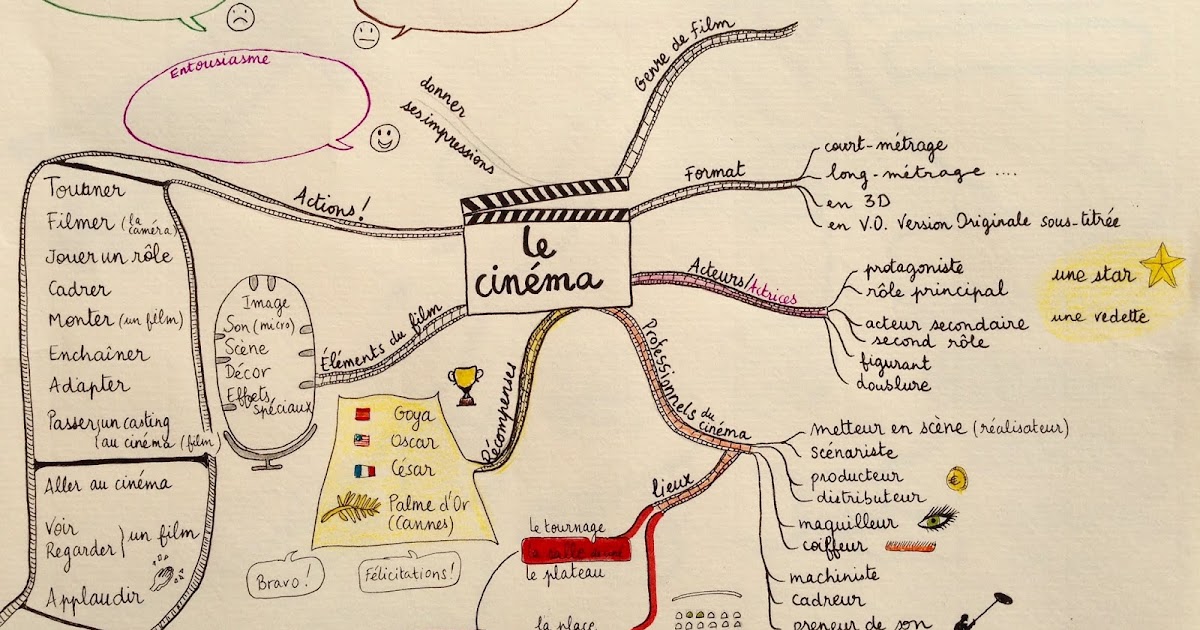 Entousiasme
donner
ses impressions
Genre de Film
Format
court-métrage
long-métrage ....
en 3D
en V.O. Version Originale sous-titrée
le
cinéma
Acteurs/Actrices
protagoniste
rôle principal
acteur secondaire
second rôle
figurant
doublure
une star
une vedette
Actions!
Tourner
Filmer (la caméra)
Jouer un rôle
Cadrer
Monter (un film)
Enchaîner
Adapter
Passer un casting
(au cinéma (film)
Aller au cinéma
Voir
Regarder } un film
Applaudir
Éléments du film
Image
Son (micro)
Scène
Décor
Effets
spéciaux
Récompenses
Goya
Oscar
César
Palme d'Or
(Cannes)
Bravo!
Félicitations!
Professionnels du
cinéma
metteur en scène (réalisateur)
scénariste
producteur
distributeur
maquilleur
coiffeur
machiniste
cadreur
preneur de son
lieux
le tournage
la salle de ciné
le plateau
la place